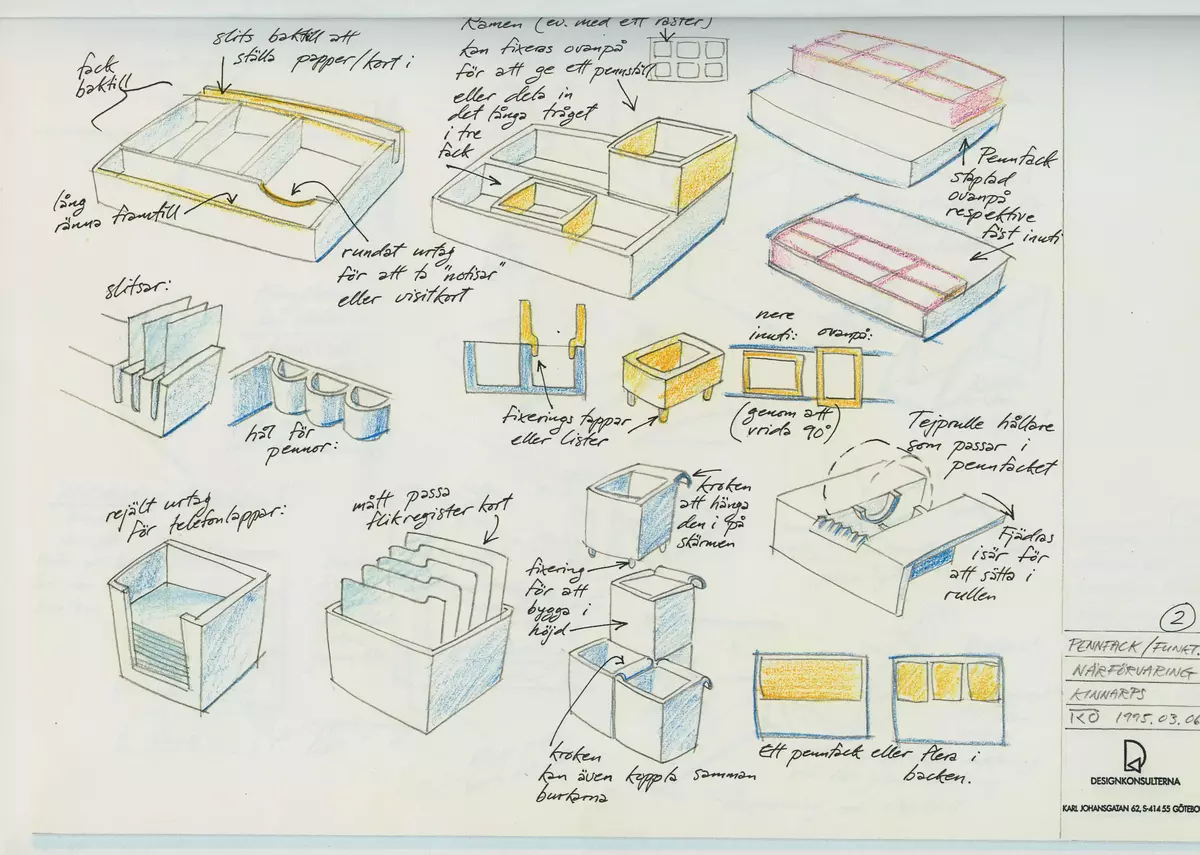 slits baktill att
ställa papper/kort i
fack
baktill
lång
ränna framtill
rundat urtag
för att ta "notisar"
eller visitkort
Ramen (ev. med ett raster)
kan fixeras ovanpå
för att ge ett pennställ
eller dela in
det långa tråget
i tre
fack
Pennfack
staplad
ovanpå
respektive
fäst inuti
slitsar:
hål för
pennor:
fixerings tappar
eller lister
nere
inuti:
ovanpå:
(genom att
vrida 90°)
Tejprulle hållare
som passar i
pennfacket
Fjädras
isär för
att sätta i
rullen
rejält urtag
för telefonlappar:
mått passa
flikregister kort
kroken
att hänga
den i på
skärmen
fixering
för att
bygga i
höjd
kroken
kan även koppla samman
burkarna
Ett pennfack eller flera i
backen.
2
PENNFACK/FUNKT.
NÄRFÖRVARING
KINNARPS
KÖ 1995.03.06
DESIGNKONSULTERNA
KARL JOHANSGATAN 62, S-414 55 GÖTEBO